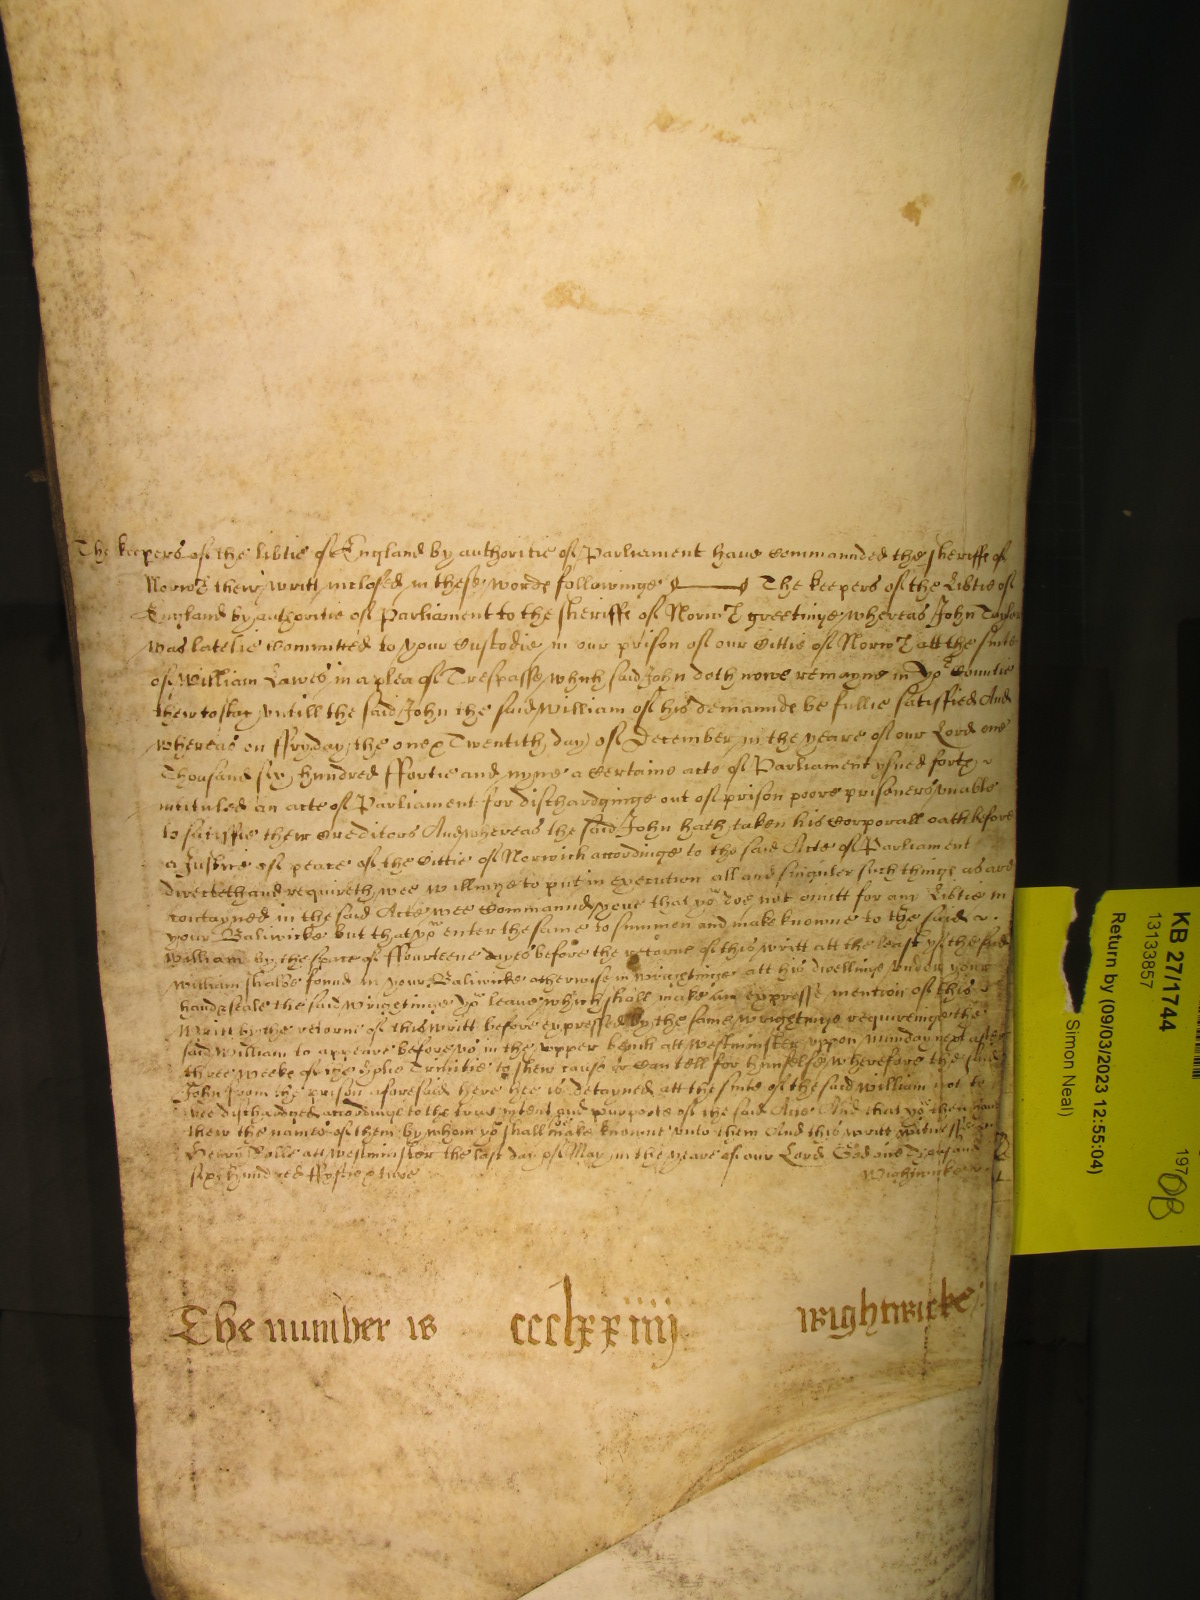 The keepers of the libtie of England by authoritie of Parliament have commaunded the sheriffe of
Norwč their writt inclosed in these worde followinge The keepers of the Libtie of
England by authoritie of Parliament to the sheriffe of Norwč greetinge whereas John Taylor
was latelie committed to your Custodie in our prison of our Cittie of Norwč att the suite
of William Lawes in a plea of Trespasse which said John doth nowe remayne in yor Countie
their to stay untill the said John the said William of his demaunde be fullie satisffied And
whereas on ffryday the one & Twentith day of December in the yeare of our Lord one
Thousand six hundred ffortie and nyne a certaine acte of Parliament ysued forth
intituled an acte of Parliament for dischardginge out of prison poore prisoners unable
to satisffie their Creditors And whereas the said John hath taken his Corporall oath before
a Justice of peace of the Cittie of Norwich accordinge to the said Acte of Parliament
directeth and requireth wee willinge to put in execution all and singuler such things as are
contayned in the said Acte wee Commaund youe that yow doe not omitt for any Libtie in
your Baliwicke but that yow enter the same to summon and make knowne to the said
William by the space of ffourteene dayes before the retorne of this writt att the least yf the said
William shalbe found in your Baliwicke otherwise in wrightinge att his dwellinge under your
hand & seale the said wrightinge yow leave which shall make an expresse mention of this
writt by the retorne of this writt before expressed by the same wrightinge requireinge the
said William to appeare before us in the upper bench att Westminster uppon munday next after
three weeke of the holie Trinitie to shew cause if Can tell for himselfe wherefore the said
John from the prison aforesaid here hee is detayned att the suite of the said William not to
bee dischardged accordinge to the true intent and purporte of the said Acte And that yow then have
their the names of them by whom yow shall make knowne unto them And this writt witnesse
Henry Rolle att Westminster the last day of May in the yeare of our Lord God one Thousand
six hundred ffyftie & twoe Wightwicke
The number is ccclxxiiij Wightwicke
KB 27/1744
13133857
Return by (09/03/2023 12:55:04)
Simon Neal)
197